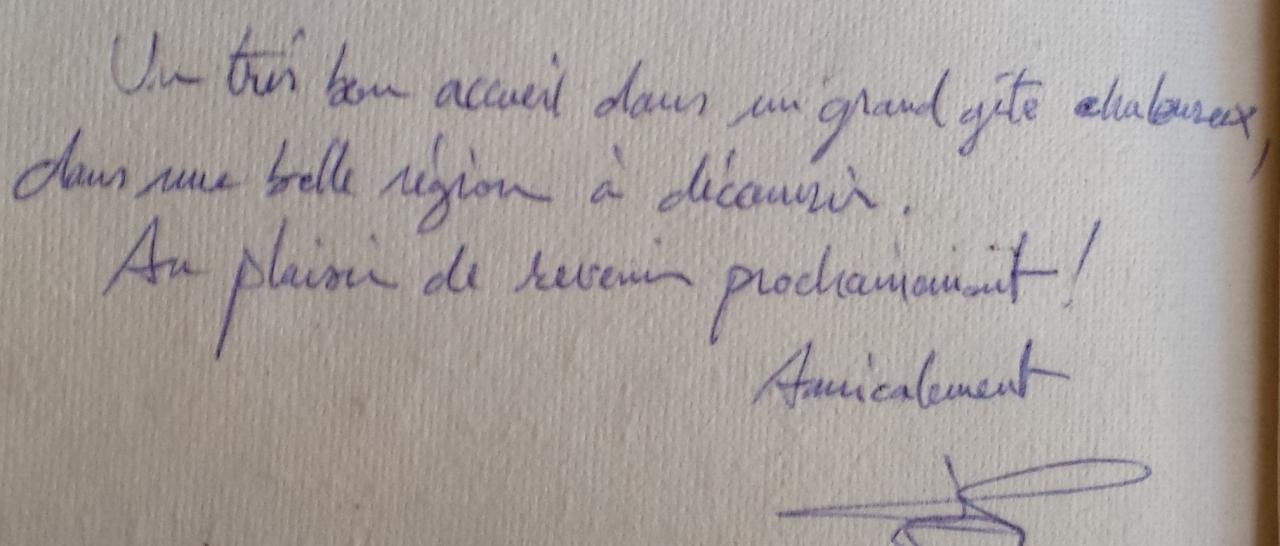 Un très bon accueil dans un grand gîte chaleureux,
dans une belle région à découvrir.
Au plaisir de revenir prochainement !
Amicalement